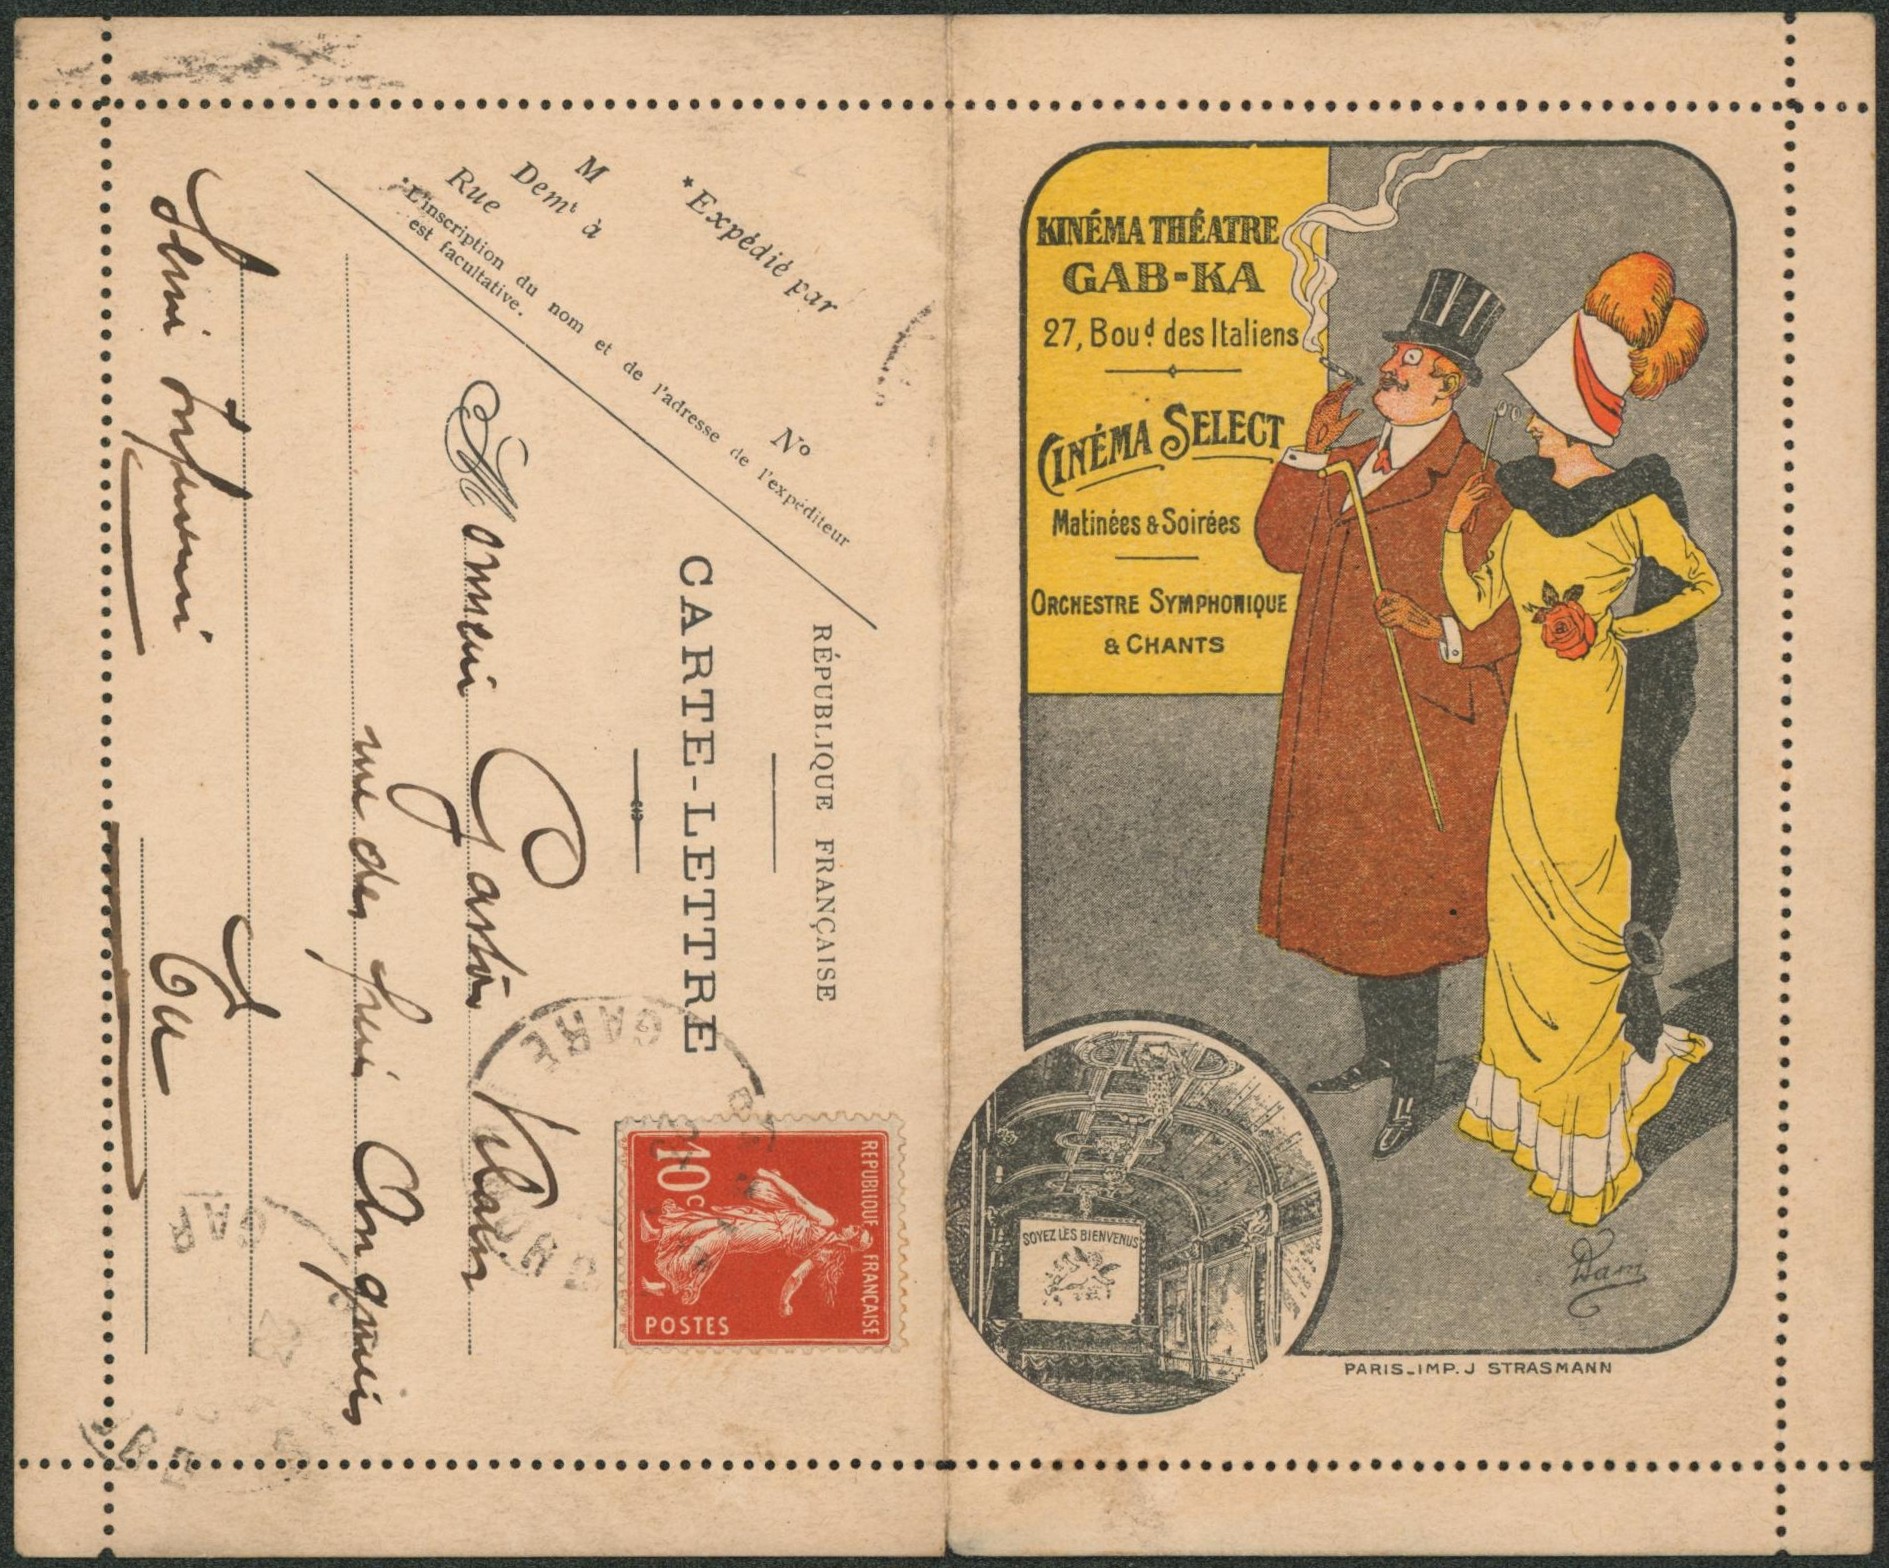 *Expédié par
M
Demt à
Rue
No
*L'inscription du nom et de l'adresse de l'expéditeur
est facultative.
RÉPUBLIQUE FRANÇAISE
CARTE-LETTRE
Monsieur Gaston Vilain
rue des
Tu
REPUBLIQUE FRANÇAISE
10c
POSTES
GARE
GARE
KINÉMA THÉATRE
GAB-KA
27, Boud des Italiens
CINÉMA SELECT
Matinées & Soirées
ORCHESTRE SYMPHONIQUE
& CHANTS
SOYEZ LES BIENVENUS
Dam
PARIS_IMP. J STRASMANN